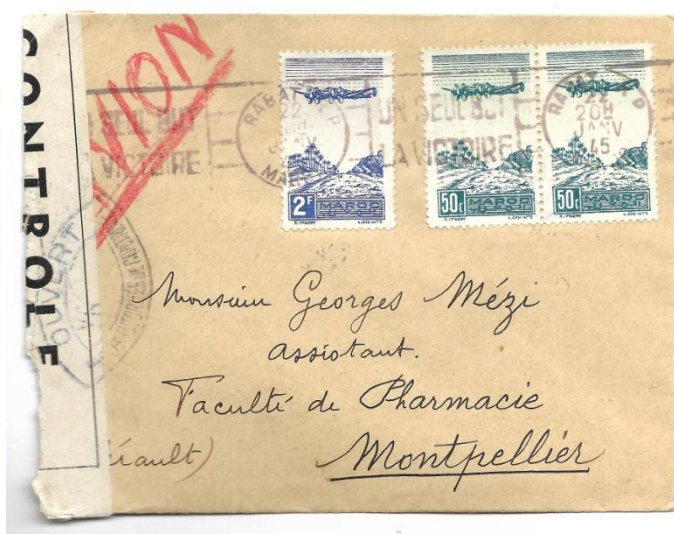 CONTROLE
AVION
UN SEUL BUT
LA VICTOIRE
RABAT R P
22
JANV
MAROC
UN SEUL BUT
LA VICTOIRE
RABAT R P
22
20H
JANV
45
2F MAROC
50c MAROC
50c MAROC
OUVERT
Monsieur Georges Mézi
assistant.
Faculté de Pharmacie
Montpellier
érault)